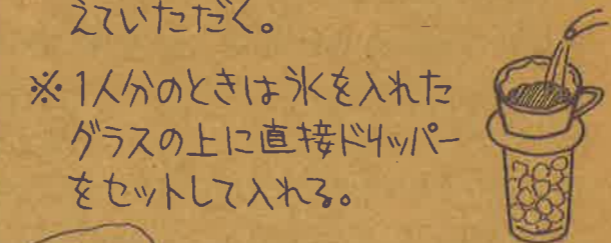 えていただく。
※1人分のときは氷を入れた
グラスの上に直接ドリッパー
をセットして入れる。